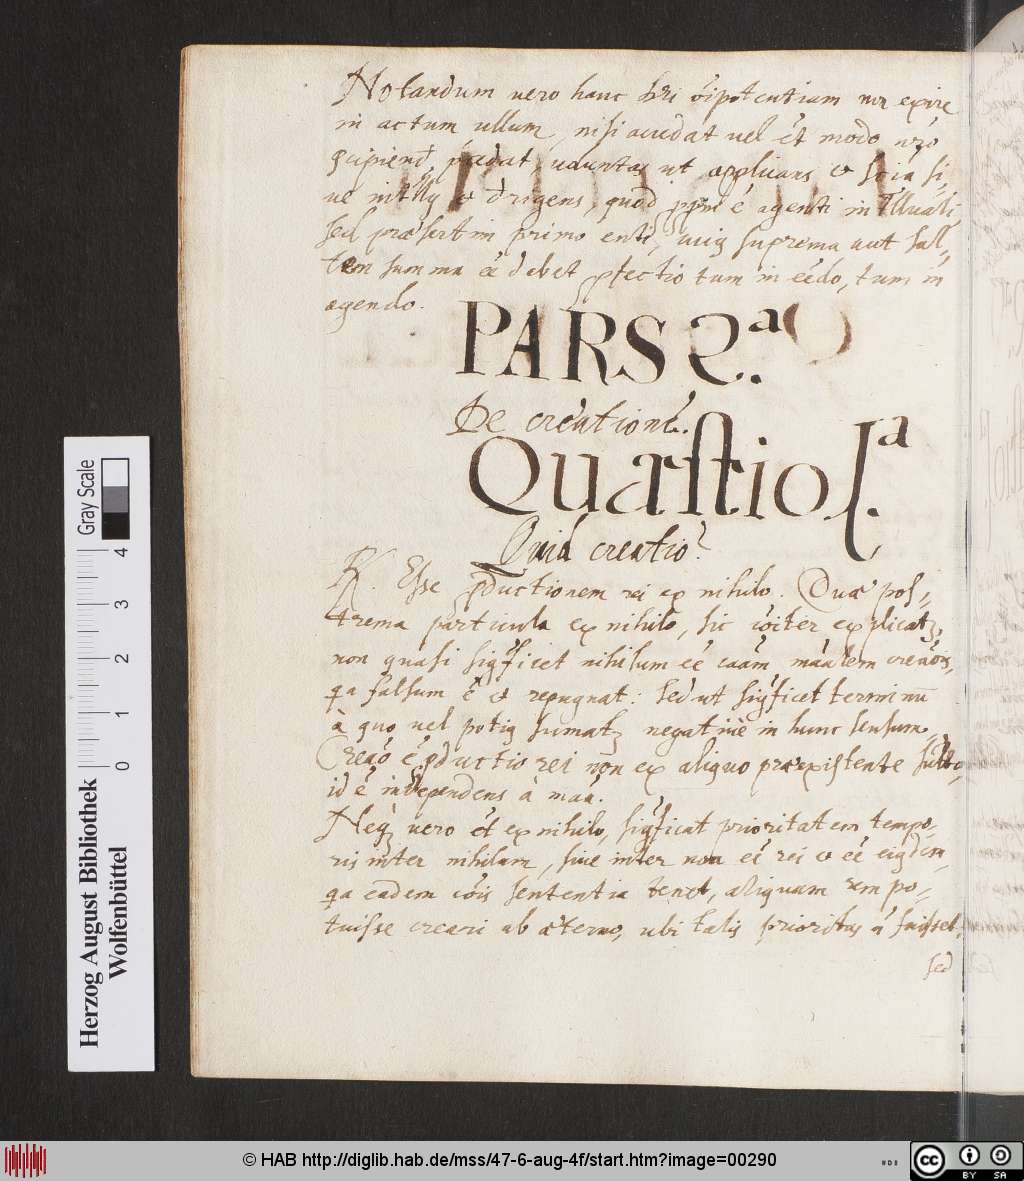 Notandum vero hanc hri oi͞potentiam nõ exire
in actum ullum, nisi accedat vel ẽt modo nr͞o
ꝯcipiendi, p͞cedat, voluntas ut applicans et
sed præsertim primo enti, cuiꝰ suprema aut sal=
tem summa ẽe debet ꝑfectio tum in ẽedo, tum in
agendo.
PARS 2.ª
De creatione.
Quæstio I.ª
Quid creatio?
R. Esse ꝓductionem rei ex nihilo. Quæ pos=
trema particula ex nihilo, sic cõiter explicatꝛ,
non quasi sig͞ficet nihilum ẽe cãam mãalem creãõis,
qa falsum ẽ et repugnat: sed ut sig͞ficet terminũ
à quo, vel potiꝰ sumatꝛ negatiuè in hunc sensum.
Creãõ ẽ ꝓductio rei non ex aliquo præexistente subto,
id ẽ independens à mãa.
Neqꝫ vero ẽt ex nihilo, sig͞ficat prioritatem tempo-
ris inter nihilum, siue inter non ẽe rei et ẽe eiꝰdem
qa eadem cõis sententia tenet, aliquam rem po-
tuisse creari ab æterno, ubi talis prioritas ñ fuisset.
sed
Gray Scale
0 1 2 3 4
Herzog August Bibliothek
Wolfenbüttel
© HAB http://diglib.hab.de/mss/47-6-aug-4f/start.htm?image=00290
cc BY SA